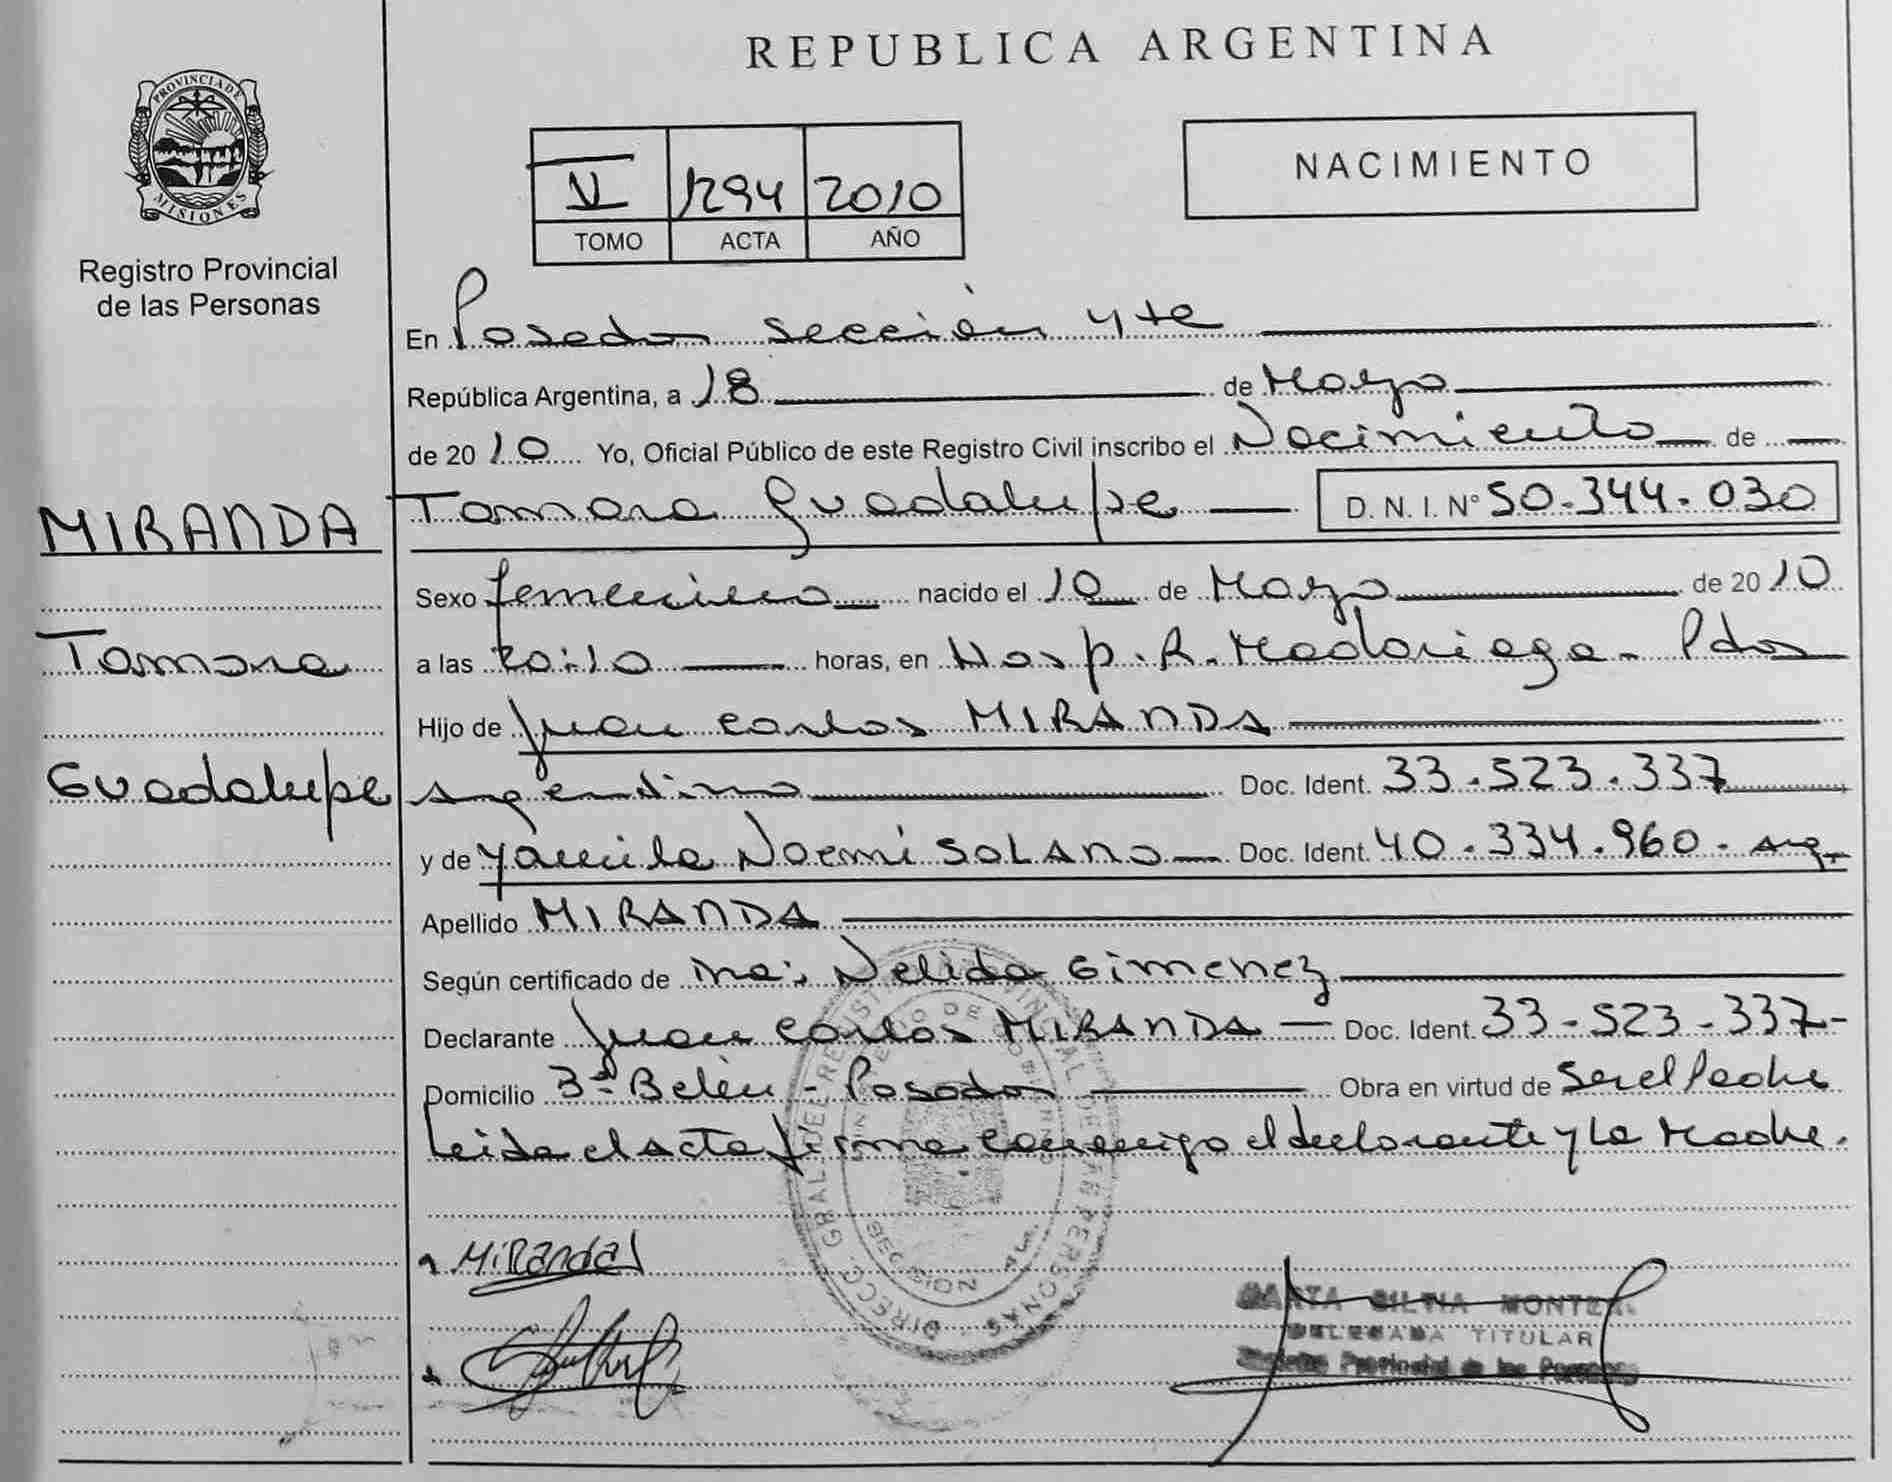 REPUBLICA ARGENTINA
PROVINCIA DE MISIONES
Registro Provincial
de las Personas
V 1294 2010
TOMO ACTA AÑO
NACIMIENTO
En Posadas sección 4ta
República Argentina, a 18 de Marzo
de 2010 Yo, Oficial Público de este Registro Civil inscribo el Nacimiento de
MIRANDA
Tamara
Guadalupe
Tamara Guadalupe D. N. I. N° 50.344.030
Sexo femenino nacido el 10 de Marzo de 2010
a las 20:10 horas, en Hosp. R. Madariaga - Pdas
Hijo de Juan Carlos MIRANDA
Argentino Doc. Ident. 33.523.337
y de Yamila Noemi SOLANO Doc. Ident. 40.334.960 - Arg.
Apellido MIRANDA
Según certificado de Nelida Gimenez
Declarante Juan Carlos MIRANDA Doc. Ident. 33-523-337-
Domicilio Belén - Posadas Obra en virtud de Ser el Padre
Leida el acta firma conmigo el declarante y la Madre.
Miranda
DIRECC. GRAL. DEL REGISTRO PROVINCIAL DE LAS PERSONAS
MINISTERIO DE GOBIERNO
SECCION
MARTA SILVIA
DELEGADA TITULAR
Registro Provincial de las Personas